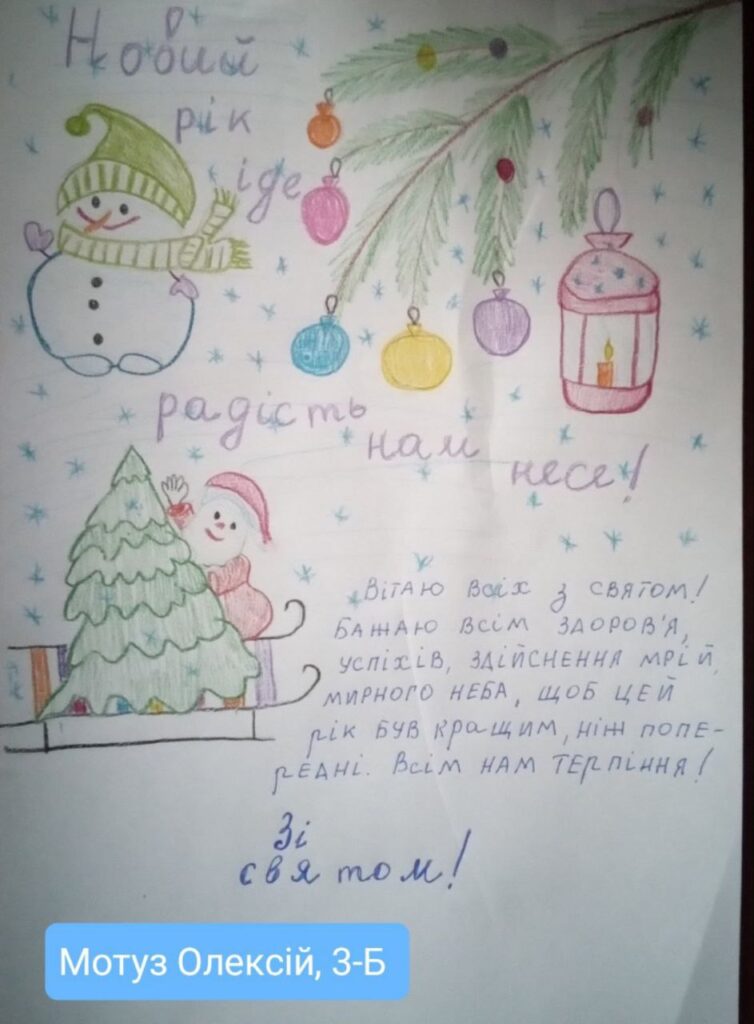 Новий
рік
іде
радість
нам
несе!
Вітаю всіх з святом!
Бажаю всім здоров'я,
успіхів, здійснення мрій,
мирного неба, щоб цей
рік був кращим, ніж попе-
редні. Всім нам терпіння!
Зі
святом!
Мотуз Олексій, 3-Б